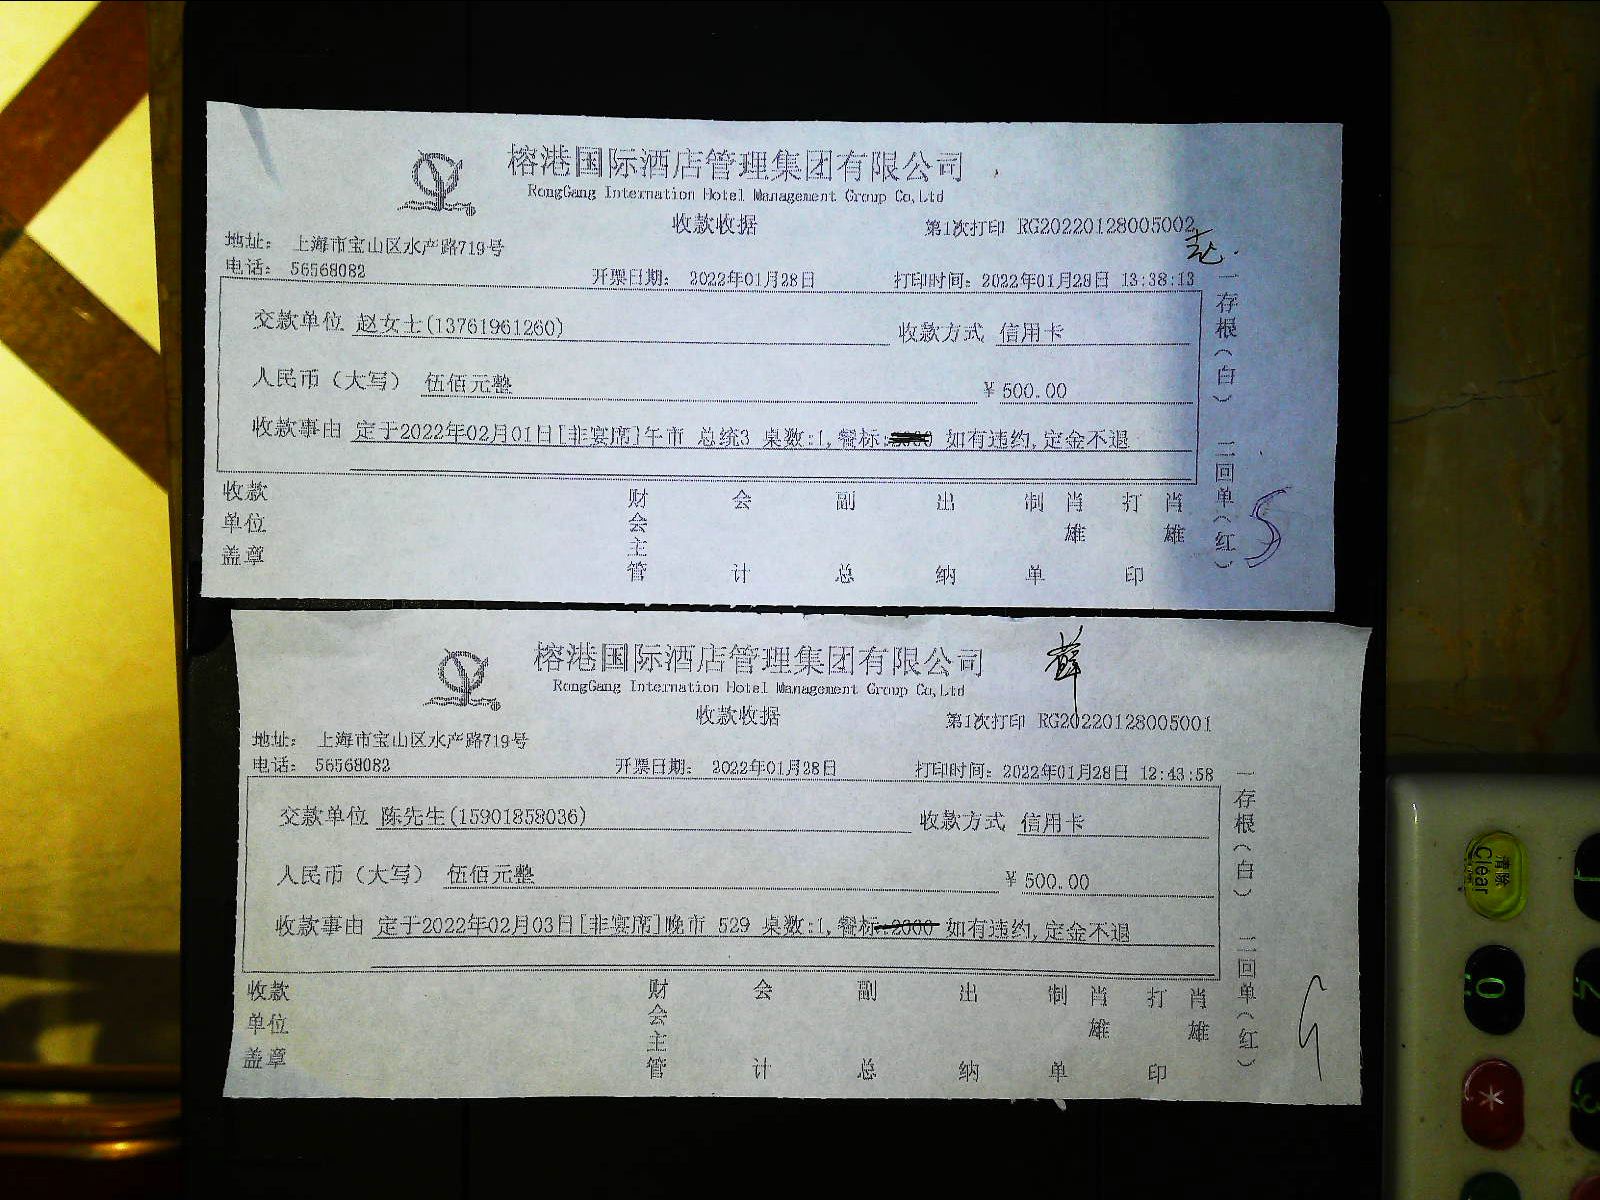 榕港国际酒店管理集团有限公司
RongGang Internation Hotel Management Group Co,Ltd
收款收据
第1次打印 RG20220128005002
地址： 上海市宝山区水产路719号
电话： 56568082 开票日期： 2022年01月28日 打印时间：2022年01月28日 13:38:13
交款单位 赵女士(13761961260) 收款方式 信用卡
人民币（大写） 伍佰元整 ￥500.00
收款事由 定于2022年02月01日[非宴席]午市 总统3 桌数:1,餐标: 如有违约,定金不退
收款单位盖章 财会主管 会计 副总 出纳 制单 肖雄 打印 肖雄
一存根（白） 二回单（红）
榕港国际酒店管理集团有限公司
RongGang Internation Hotel Management Group Co,Ltd
薛
收款收据
第1次打印 RG20220128005001
地址： 上海市宝山区水产路719号
电话： 56568082 开票日期： 2022年01月28日 打印时间：2022年01月28日 12:43:58
交款单位 陈先生(15901858036) 收款方式 信用卡
人民币（大写） 伍佰元整 ￥500.00
收款事由 定于2022年02月03日[非宴席]晚市 529 桌数:1,餐标:2000 如有违约,定金不退
收款单位盖章 财会主管 会计 副总 出纳 制单 肖雄 打印 肖雄
一存根（白） 二回单（红）
清除
Clear
0
*